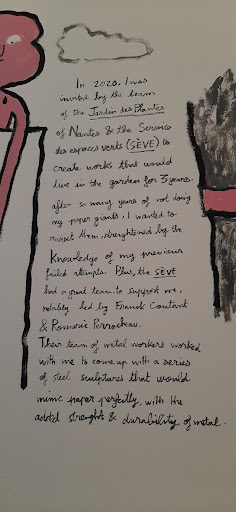 In 2020, I was
invited by the team
of the Jardin des Plantes
of Nantes & the Service
des espaces verts (SÈVE) to
create works that would
live in the garden for 3 years.
after so many years of not doing
my paper giants, I wanted to
revisit them, strenghtened by the
Knowledge of my previous
failed attempts. Plus, the SÈVE
had a great team to support me,
notably led by Franck Coutant
& Romaric Perrocheau.
Their team of metal workers worked
with me to come up with a series
of steel sculptures that would
mimic paper perfectly, with the
added strenght & durability of metal.